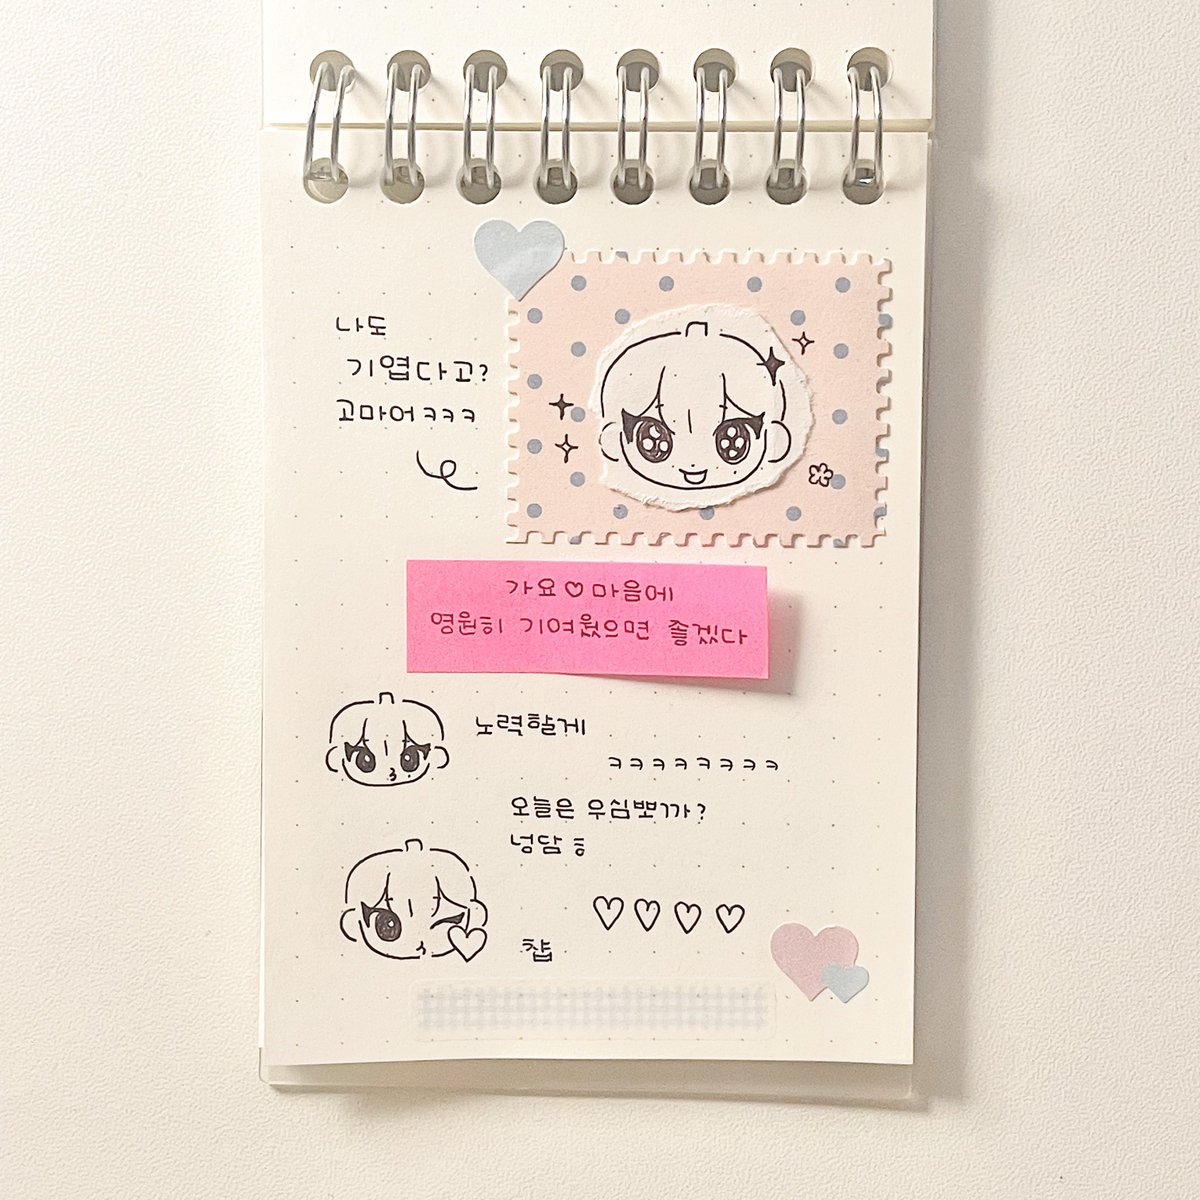 나도
기엽다고?
고마어ㅋㅋㅋ
가요♡마음에
영원히 기여웠으면 좋겠다
노력할게
ㅋㅋㅋㅋㅋㅋㅋㅋ
오늘은 우심뽀까?
넝담ㅎ
♡♡♡♡
챱